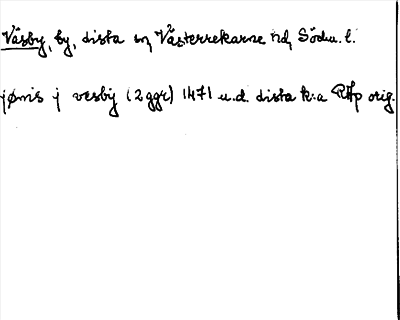 Väsby, by, dista sn, Västerrekarne hd, Södm. l.
jønis j vesby (2 ggr) 1471 u.d. dista k:a RAp orig.